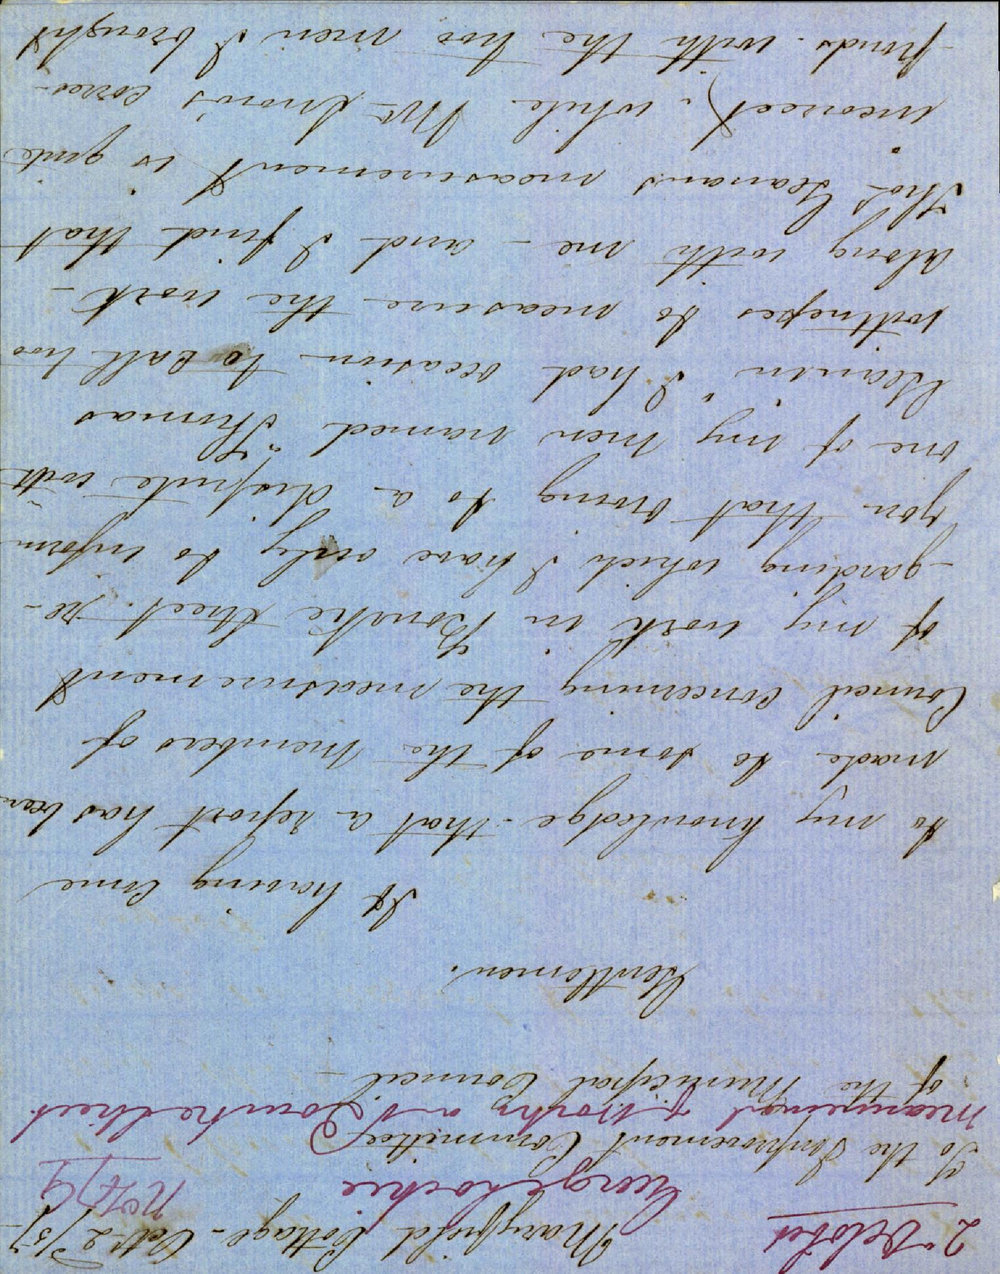 Maryfield Cottage - Oct 2/57
2 October
George Lockie
No 7/9
To the Improvement Committee
measurement of Works at Bourke Street
of the Municipal Council -
Gentlemen.
It having come
to my knowledge - that a report has been
made to some of the Members of
Council concerning the measurement
of my work in Bourke Street re-
-garding which I have only to inform
you that owing to a dispute with
one of my men named "Thomas
Gleanin" I had occasion to call two
wittnesses to measure the work -
along with me - and I find that
Thos. measurement is quite
incorrect, while Mr corres-
-ponds with the two men I brought